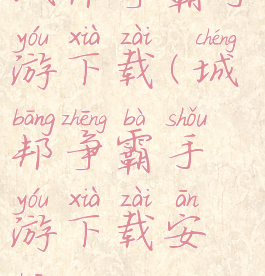 yóu xià zài chéng
游下载(城
bāng zhēng bà shǒu
邦争霸手
yóu xià zài ān
游下载安